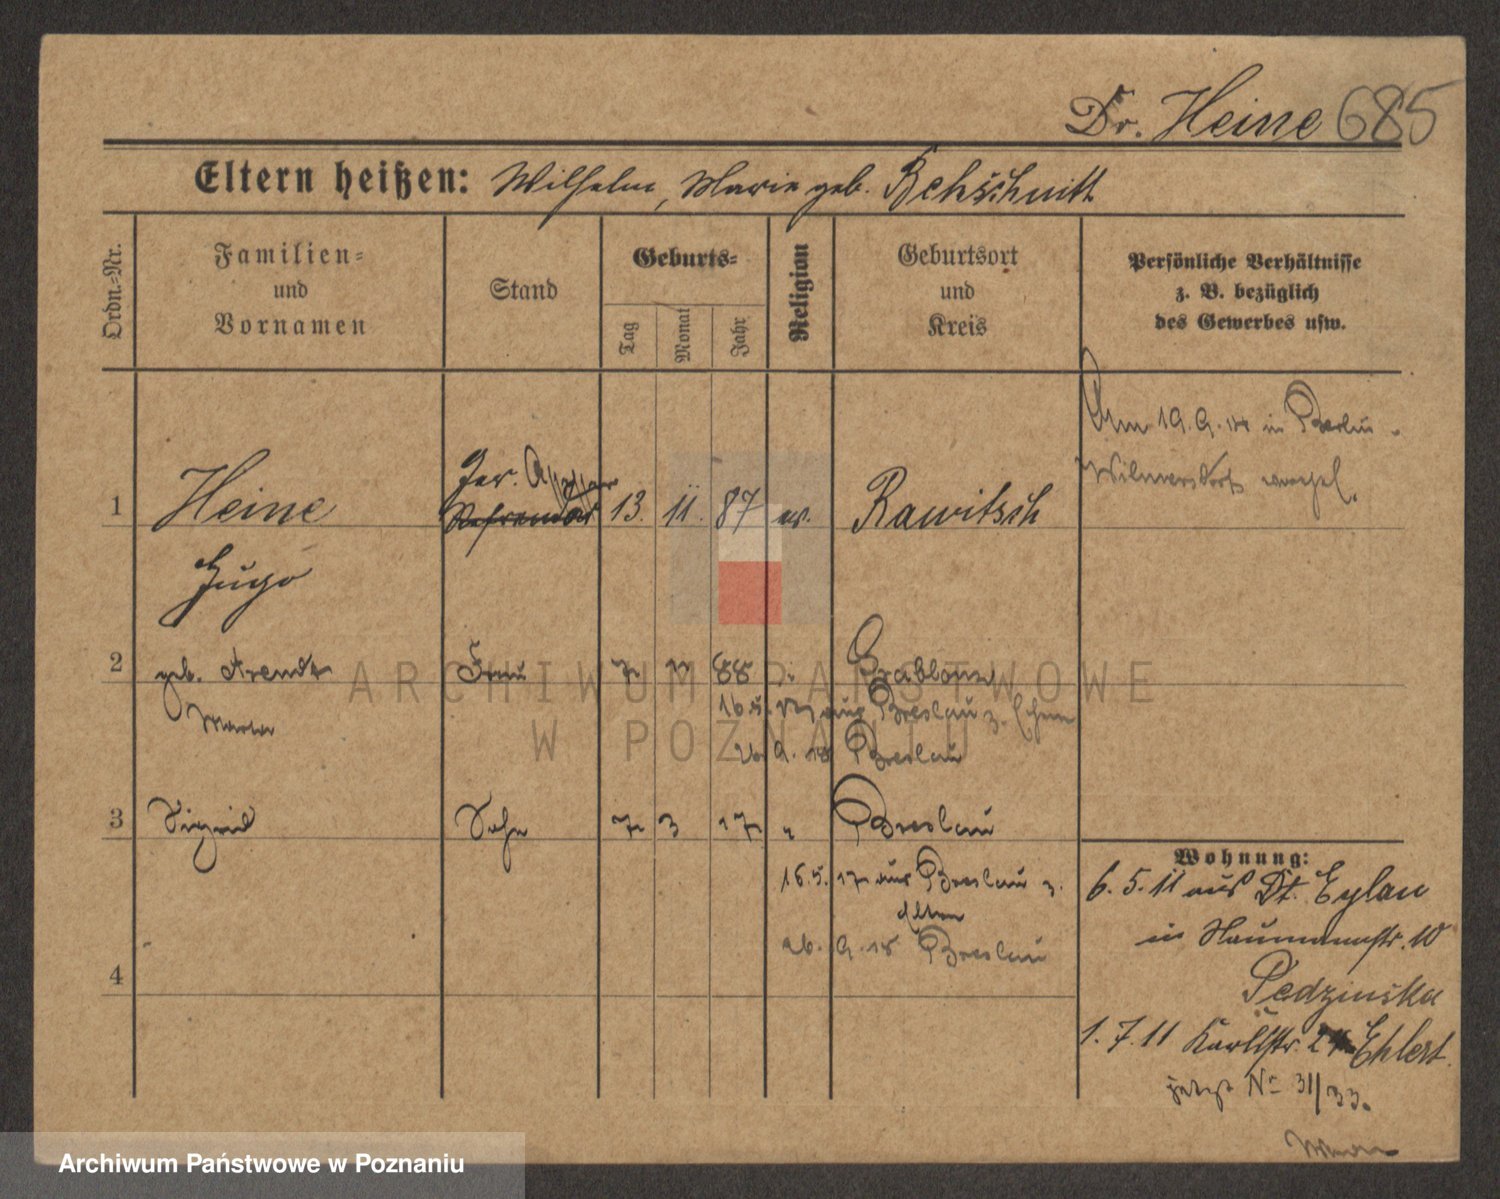 Dr. Heine 685
Eltern heißen: Wilhelm, Marie geb. Rehschnitt
Ordn.=Nr.
Familien=
und
Vornamen
Stand
Geburts=
Tag
Monat
Jahr
Religion
Geburtsort
und
Kreis
Persönliche Verhältnisse
z. B. bezüglich
des Gewerbes usw.
Am 19. 9. in Berlin -
Wilmersdorf
Ger. Assessor
1 Heine Referendar 13. 11. 87 ev. Rawitsch
Hugo
2 geb. Arendt Frau 7. 88 "
Maria aus Breslau z.
26. 9. 18 Breslau
3 Sohn 7. 3 17 " Breslau
16. 5. 17 aus Breslau z.
Eltern
26. 9. 18 Breslau
4
Wohnung:
6. 5. 11 aus Dt. Eylau
in Naumannstr. 10
Pedzinska
1. 7. 11 Karlstr. Ehlert
jetzt No 31/33.
ARCHIWUM PAŃSTWOWE
W POZNANIU
Archiwum Państwowe w Poznaniu